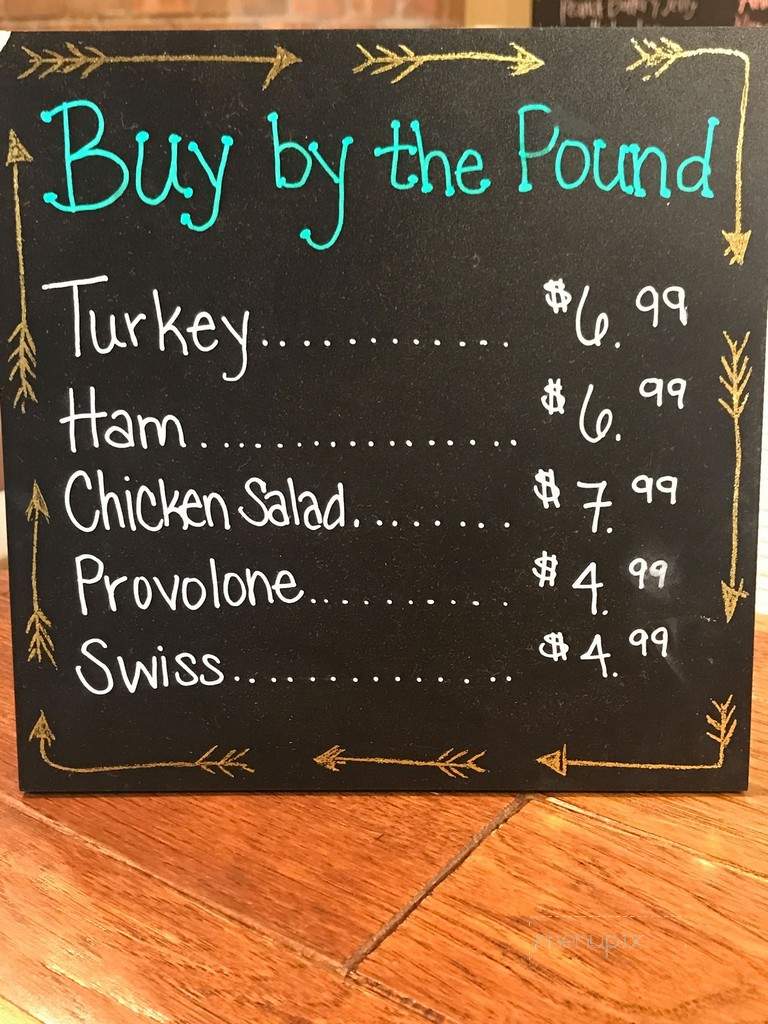 Peanut Butter & Jelly
Buy by the Pound
Turkey............. $6.99
Ham................. $6.99
Chicken Salad......... $7.99
Provolone........... $4.99
Swiss............... $4.99
menupix